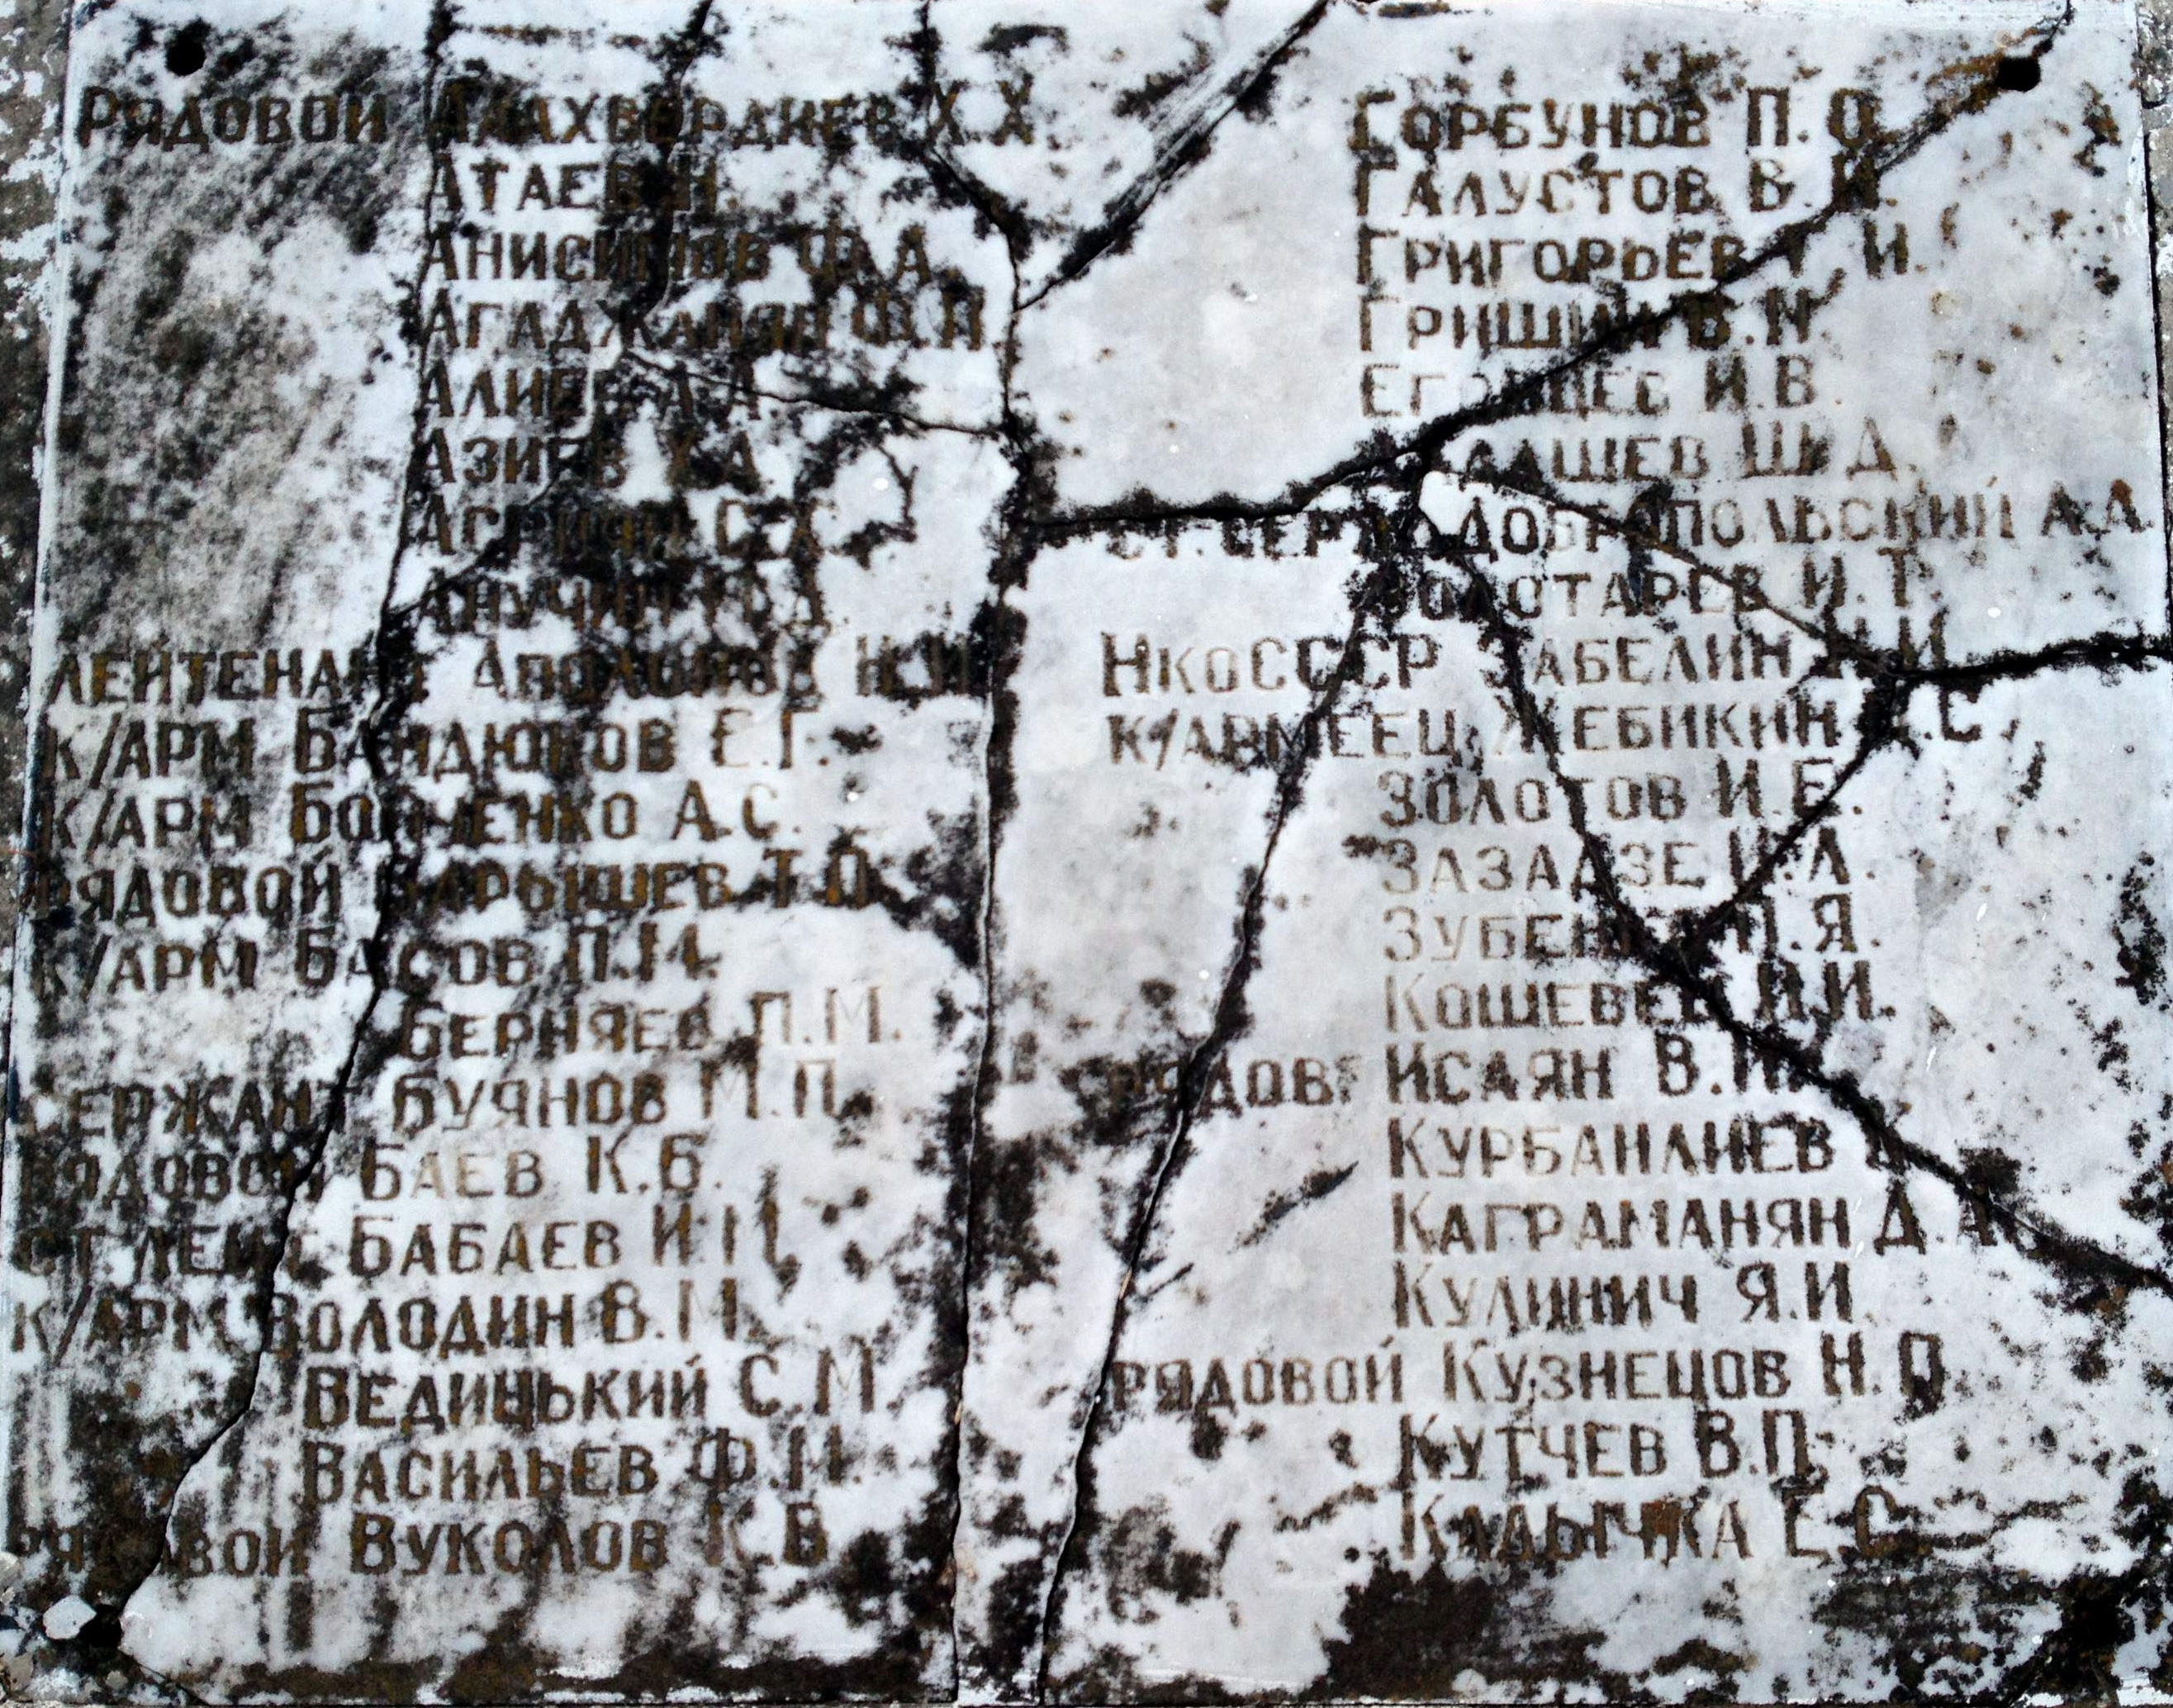 Рядовой Алахвердиев Х.Х.
Атаев Н.
Анисимов Ф.А.
Агаджанян Ф.Н
Алиев А.А
Азиев Х.А
С.Х.
Анучин
Лейтенант Н.И
К/арм Байдюков Е.Г.
К/арм А.С.
Рядовой Барышев Т.О.
К/арм Басов П.М.
Берняев П.М.
Сержант Буянов М.П.
Рядовой Баев К.Б.
Ст. лейт. Бабаев
К/арм Володин В.М.
Ведицький С.М.
Васильев Ф.Н.
Рядовой Вуколов К.В
Горбунов П.О.
Галустов В.
Григорьев Г.И.
Гришин В.Н.
И.В.
Ш.Д.
Ст. серж. Добропольский А.А.
Золотарев И.Т.
НкоСССР Забелин
К/армеец Жебикин С.
Золотов И.Е.
Зазадзе
П.Я.
Кошевец И.И.
Рядов. Исаян В.
Курбаналиев
Каграманян Д.А.
Кулинич Я.И.
Рядовой Кузнецов Н.О.
Кутчев В.П.
Кадычка Е.С.